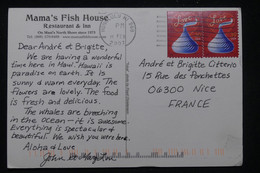 Mama's Fish House
Restaurant & Inn
On Maui's North Shore since 1973
Dear André et Brigitte,
We are having a wonderful
time here in Maui. Hawaii is
paradise on earth. It is
sunny & warm everyday. The
flowers are lovely. The food
is fresh and delicious.
The whales are breeching
in the ocean — it is awesome.
Everything is spectacular &
beautiful. We wish you were here.
Aloha & Love
John et
André et Brigitte Otterio
15 Rue des Ponchettes
06300 Nice
FRANCE